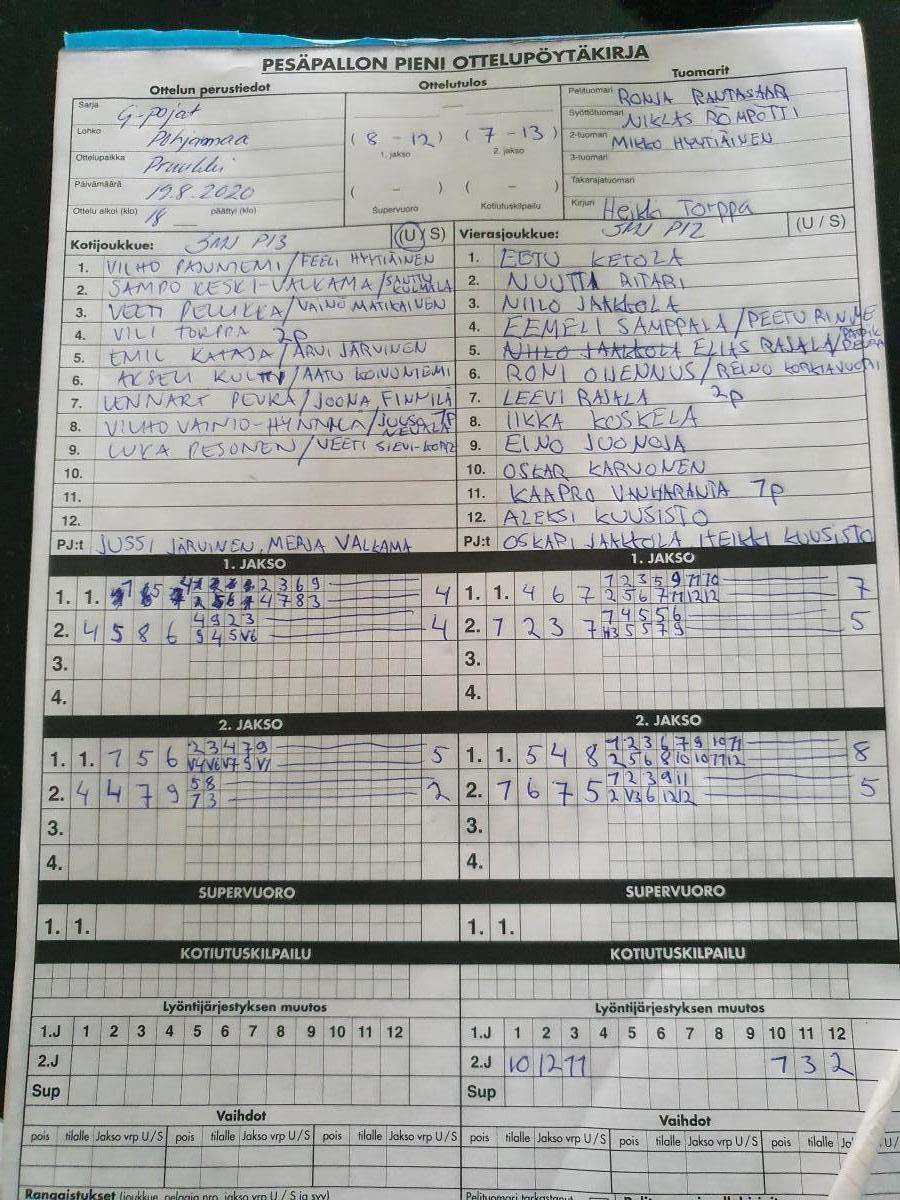 PESÄPALLON PIENI OTTELUPÖYTÄKIRJA
Ottelun perustiedot
Ottelutulos
Tuomarit
Sarja G-pojat
Lohko Pohjanmaa
Ottelupaikka
Päivämäärä 19.8.2020
Ottelu alkoi (klo) 18 päättyi (klo)
(8 - 12) (7 - 13)
1. jakso 2. jakso
( - ) ( - )
Supervuoro Kotiutuskilpailu
Pelituomari RONJA RANTASAARI
Syöttötuomari NIKLAS RÖMPÖTTI
2-tuomari MIKKO HYYTIÄINEN
3-tuomari
Takarajatuomari
Kirjuri Heikki Torppa
Kotijoukkue: SMJ P13 (U/S)
1. VILHO PAJUNIEMI/EELI HYYTIÄINEN
2. SAMPO KESKI-VALKAMA/SANTTU
3. VEETI PELKKA/VÄINÖ MATIKAINEN
4. VILI TORPPA 2p
5. EMIL KATAJA/ARVI JÄRVINEN
6. AKSELI /AATU KOIVUNIEMI
7. LENNART PEURA/JOONA FINNILÄ
8. VILHO VAINIO-HYNNILÄ/JUUSO NEVALA 1p
9. LUKA PESONEN/VEETI
10.
11.
12.
PJ:t JUSSI JÄRVINEN, MERJA VALKAMA
Vierasjoukkue: SMJ P12 (U / S)
1. EETU KETOLA
2. NUUTTA RITARI
3. NIILO JAAKKOLA
4. EEMELI SAMPPALA/PEETU RINNE
5. NIILO JAAKKOLA ELIAS RAJALA/
6. RONI OIJENNUS/REINO KORKIAVUORI
7. LEEVI RAJALA 2p
8. IIKKA KOSKELA
9. EINO JUONOJA
10. OSKAR KARVONEN
11. KAAPRO VANHARANTA 1p
12. ALEKSI KUUSISTO
PJ:t OSKARI JAAKKOLA HEIKKI KUUSISTO
1. JAKSO
1. 1. 2 3 6 9
4 7 8 3 4
2. 4 5 8 6 4 9 2 3
9 4 5 V6 4
3.
4.
1. JAKSO
1. 1. 4 6 7 1 2 3 5 9 11 10
2 5 6 7 11 12 12 7
2. 1 2 3 7 1 4 5 5 6
H3 5 5 7 9 5
3.
4.
2. JAKSO
1. 1. 1 5 6 2 3 4 7 9
V4 V6 V7 9 V1 5
2. 4 4 7 9 5 8
7 3 2
3.
4.
2. JAKSO
1. 1. 5 4 8 1 2 3 6 7 9 10 11
2 5 6 8 10 10 11 12 8
2. 1 6 7 5 1 2 3 9 11
2 V3 6 12 12 5
3.
4.
SUPERVUORO
1. 1.
SUPERVUORO
1. 1.
KOTIUTUSKILPAILU
KOTIUTUSKILPAILU
Lyöntijärjestyksen muutos
1.J 1 2 3 4 5 6 7 8 9 10 11 12
2.J
Sup
Lyöntijärjestyksen muutos
1.J 1 2 3 4 5 6 7 8 9 10 11 12
2.J 10 12 11 1 3 2
Sup
Vaihdot
pois tilalle Jakso vrp U/S pois tilalle Jakso vrp U/S pois tilalle Jakso vrp U/S
Vaihdot
pois tilalle Jakso vrp U/S pois tilalle Jakso vrp U/S pois tilalle
Rangaistukset (joukkue, pelaaja nro, jakso vrp U / S ja syy)
Pelituomari tarkastanut